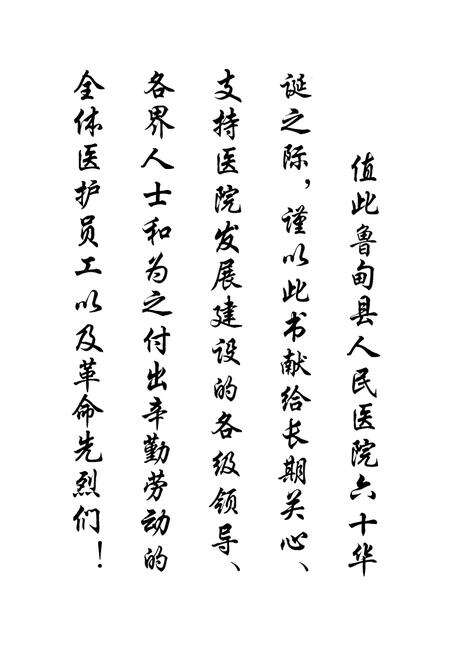 值此鲁甸县人民医院六十华
诞之际，谨以此书献给长期关心、
支持医院发展建设的各级领导、
各界人士和为之付出辛勤劳动的
全体医护员工以及革命先烈们！